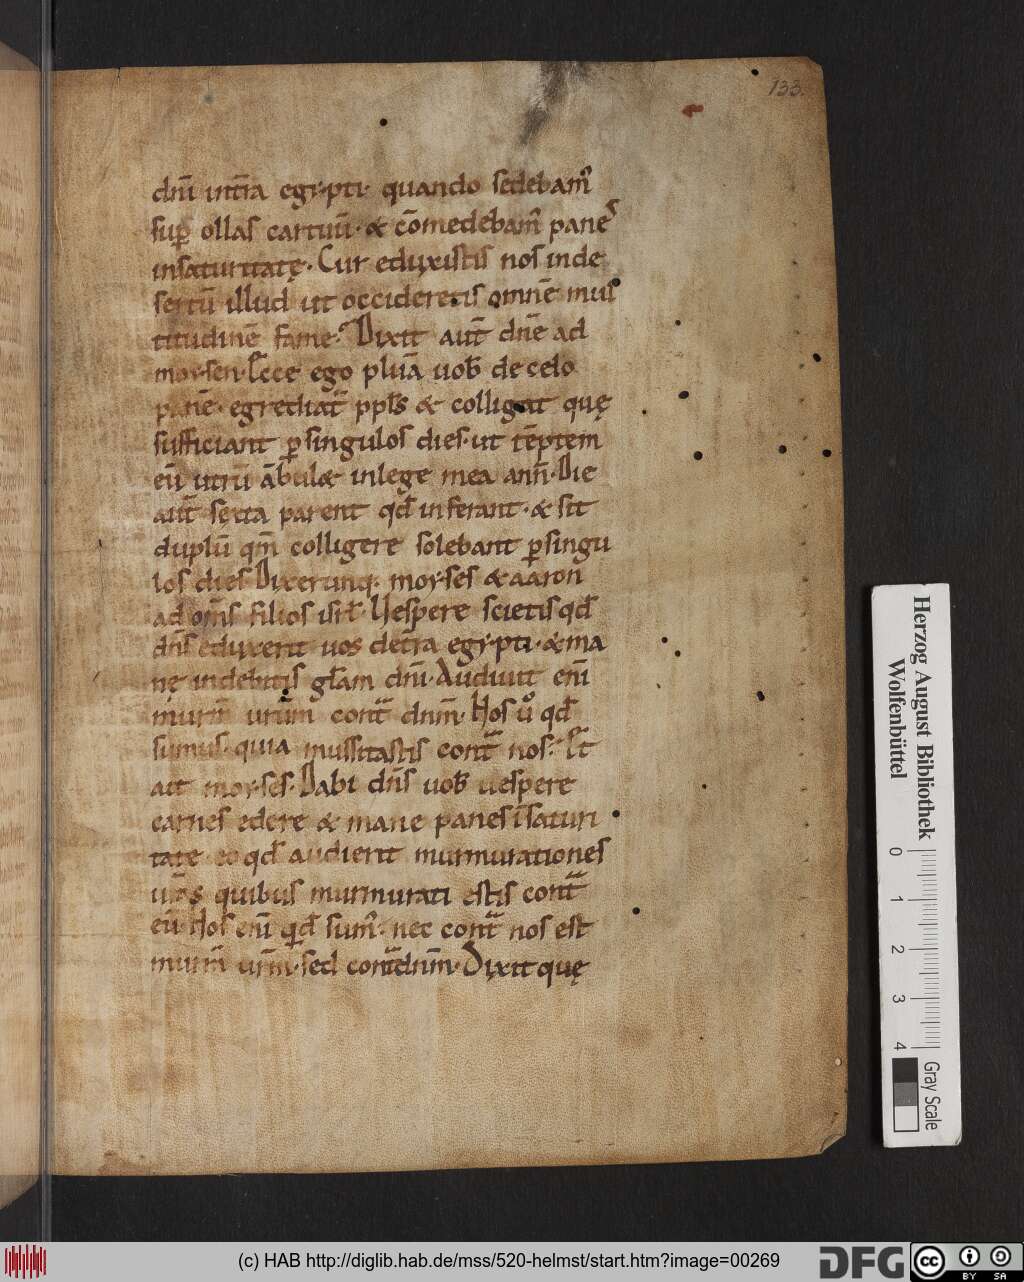 133.
dn̄i int̄ra egy·pti· quando sedebam᷒
sup̄ ollas carnuū· & cōmedebam᷒ pane᷒
insaturitatę· Cur eduxistis nos inde
sertū illud ut occideretis omnē mul
titudinē fame· Dixit aut̄ dn̄s ad
moy·sen· Ecce ego pluā uob̄ de celo
panē· egrediat᷒ ppl̄s & colligat quę
sufficiant ꝑsingulos dies· ut tēptem
eū utrū ābulæ inlege mea ann̄· Die
aut̄ sexta parent qd̄ inferant· & sit
duplū qm̄ colligere solebant ꝑsingu
los dies Dixerunq· moy·ses & aaron
ad om̄s filios isrl̄ Uespere scietis qd̄
dn̄s eduxerit uos det̄ra egy·pti· & ma
nę uidebitis gl̄am dn̄i· Audiuit enī
murm̄ urūm cont̄ dnm̄· Nos ů qd̄
sumus· quia mussitastis cont̄ nos· Et
ait moy·ses· Dabit dn̄s uob̄ uespere
carnes edere & mane panes īsaturi
tate eo qd̄ audierit murmurationes
ur̄as quibus murmurati estis cont̄
eū Nos enī qd̄ sum᷒· nec cont̄ nos est
murm̄ urm̄· sed cont̄dnm̄· Dixit quę
Herzog August Bibliothek
Wolfenbüttel
0
1
2
3
4
Gray Scale
(c) HAB http://diglib.hab.de/mss/520-helmst/start.htm?image=00269
DFG
cc
BY SA